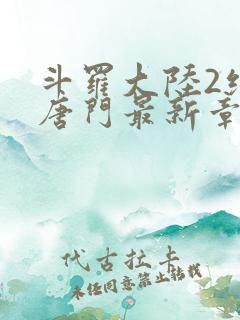 斗羅大陸2
唐門最新章
代古拉卡
未经同意禁止转载